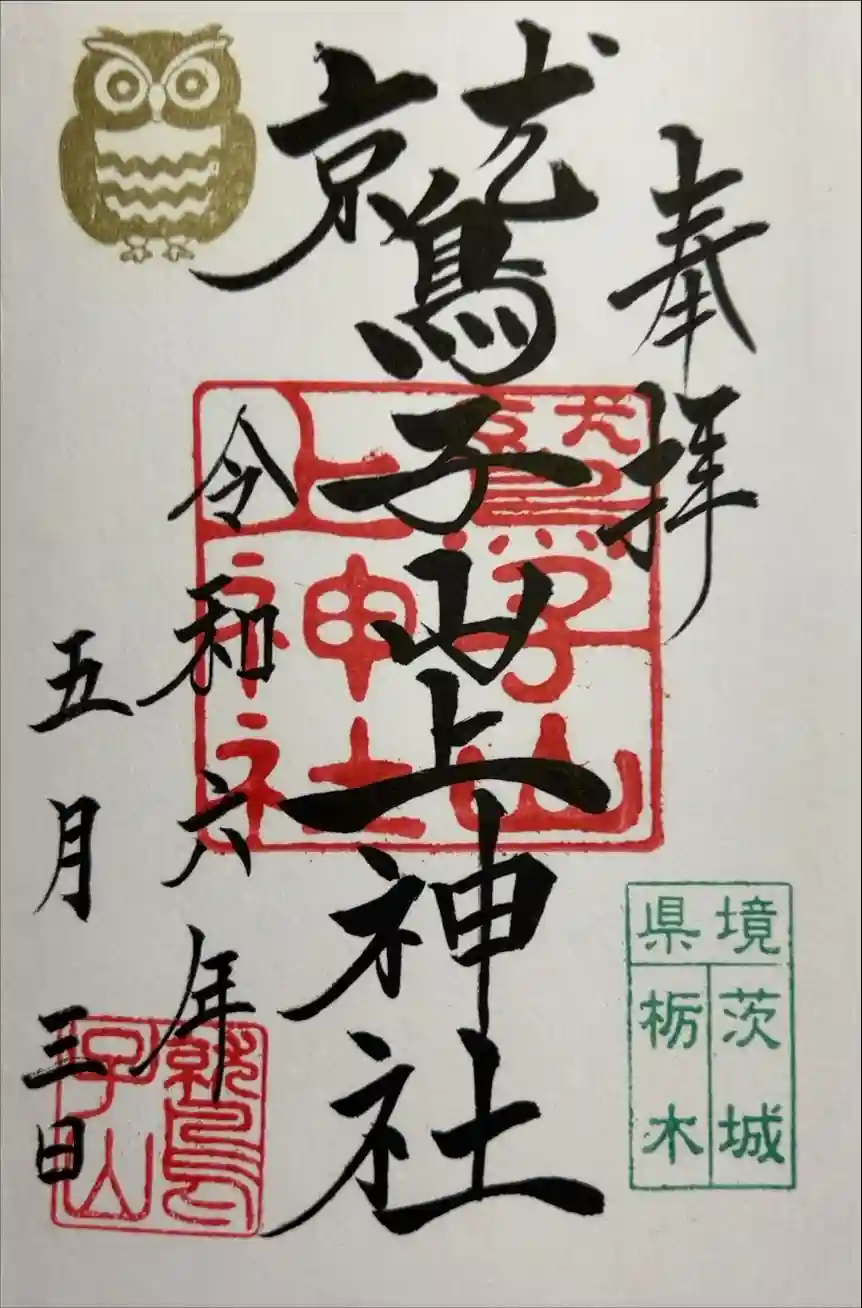 奉拝
鷲子山上神社
令和六年
五月三日
鷲子山
上神社
県境
茨城
栃木
鷲子山